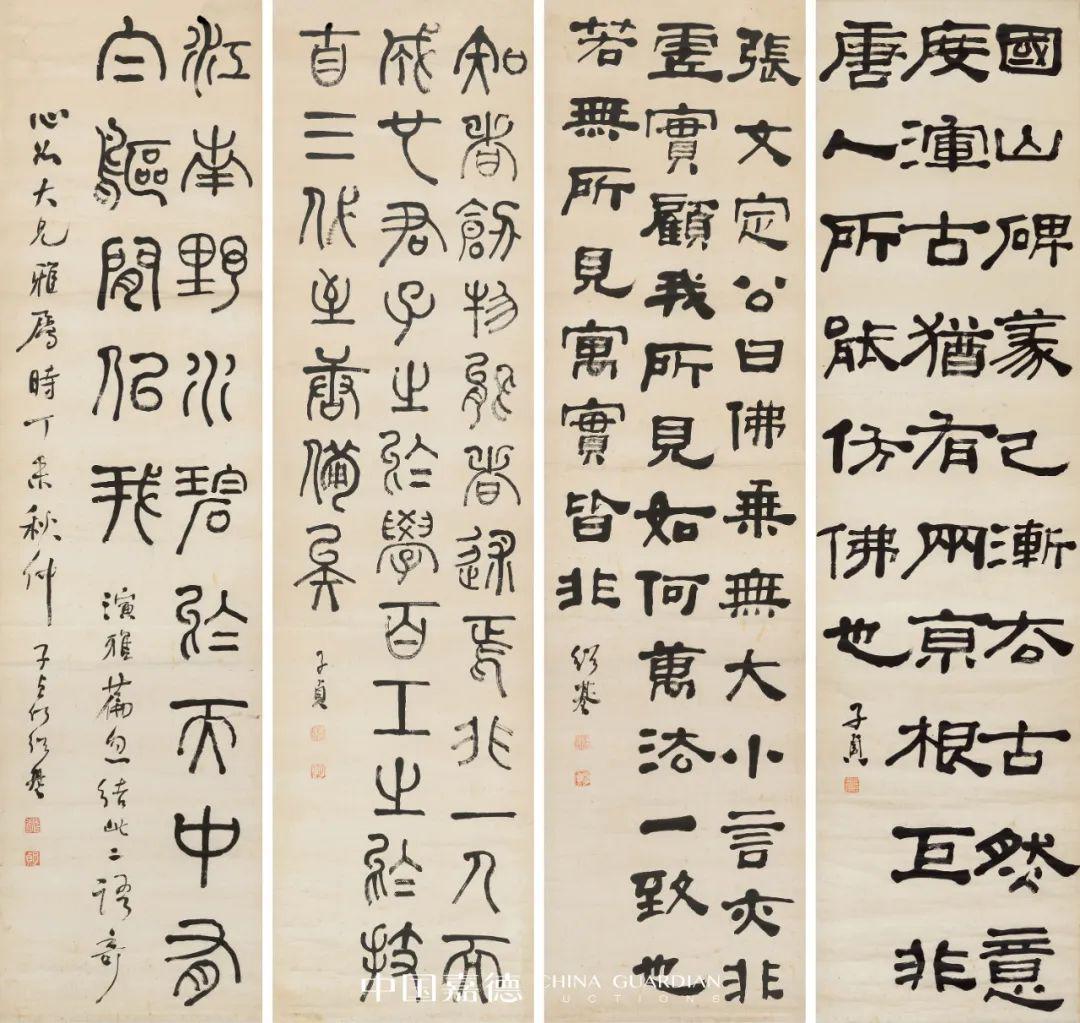 國山碑篆已漸古然意
度渾古猶有兩京根巨非
唐人所能仿佛也
子貞
張文定公曰佛乘無大小言亦非
虛實顧我所見如何萬法一致也
若無所見寓實皆非
紹基
知者創物能者述焉非一人而
成也君子之於學百工之於技
自三代至唐備矣
子貞
江南野水碧於天中有
白鷗閒似我
演雅篇忽結此二語奇
心大兄雅屬時丁未秋仲
子貞何紹基
中国嘉德
CHINA GUARDIAN
AUCTIONS